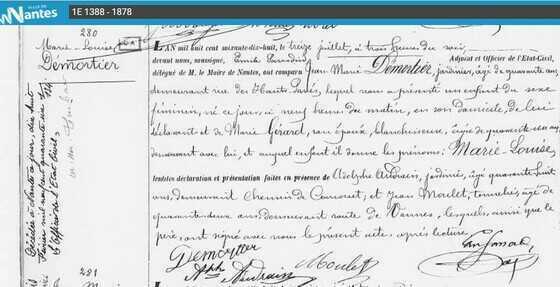 VILLE DE
Nantes
1E 1388 - 1878
280
Marie-Louise,
Demortier
L'AN mil huit cent soixante-dix-huit, le treize juillet, à trois heures du soir,
devant nous, soussigné, Adjoint et Officier de l'Etat-Civil,
délégué de M. le Maire de Nantes, est comparu Jean Marie Démortier, jardinier, âgé de quarante ans
demeurant rue des Hauts Pavés, lequel nous a présenté un enfant du sexe
féminin, né ce jour, à neuf heures du matin, en son domicile, de lui
déclarant et de Marie Gérard, son épouse, blanchisseuse, âgée de quarante-
demeurant avec lui, et auquel enfant il donne les prénoms: Marie-Louise
lesdites déclaration et présentation faites en présence de Adolphe Audrain, jardinier, âgé quarante huit
ans, demeurant Chemin de et Jean Moulet, tonnelier, âgé de
quarante-deux ans, demeurant route de Vannes, lesquels, ainsi que le
père, ont signé avec nous le présent acte, après lecture.
Demortier
Aph Audrain Moulet
Décédée à Nantes
mil neuf cent quarante
L'Officier de l'Etat Civil
281